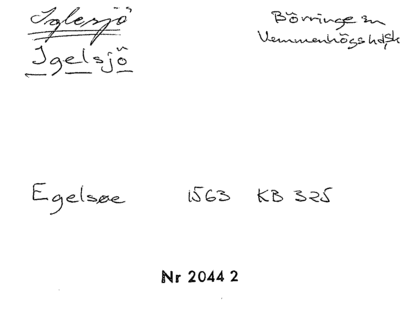 Iglesjö
Igelsjö
Börringe sn
Vemmenhögs hd, Sk
Egelsøe 1563 KB 325
Nr 2044 2